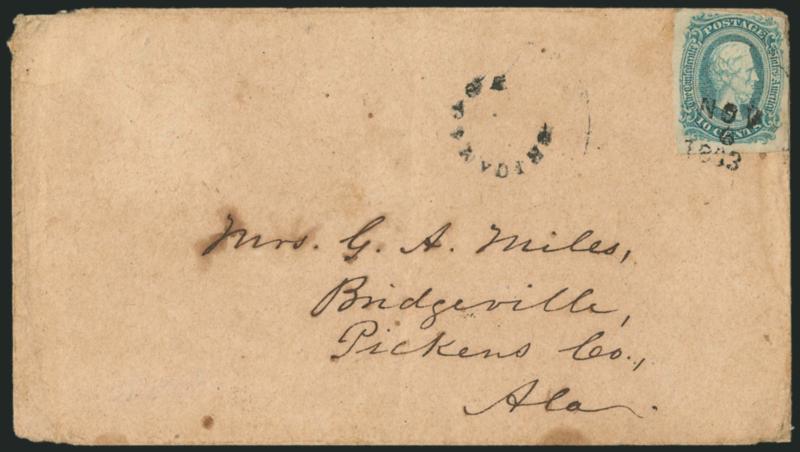 POSTAGE
The Confederate States America
10 CENTS
NOV
6
1863
Mrs. G. A. Miles,
Bridgeville,
Pickens Co.,
Ala.